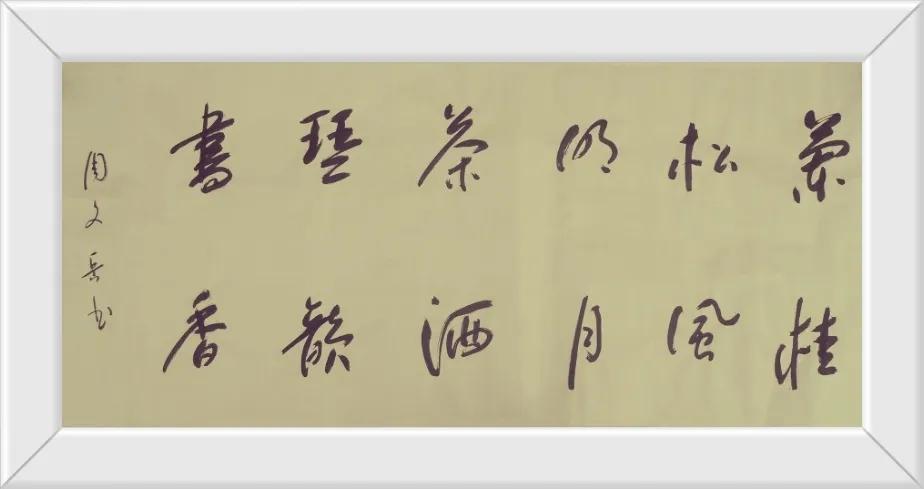 蘭桂
松風
明月
茶酒
琴韻
書香
周文岳书